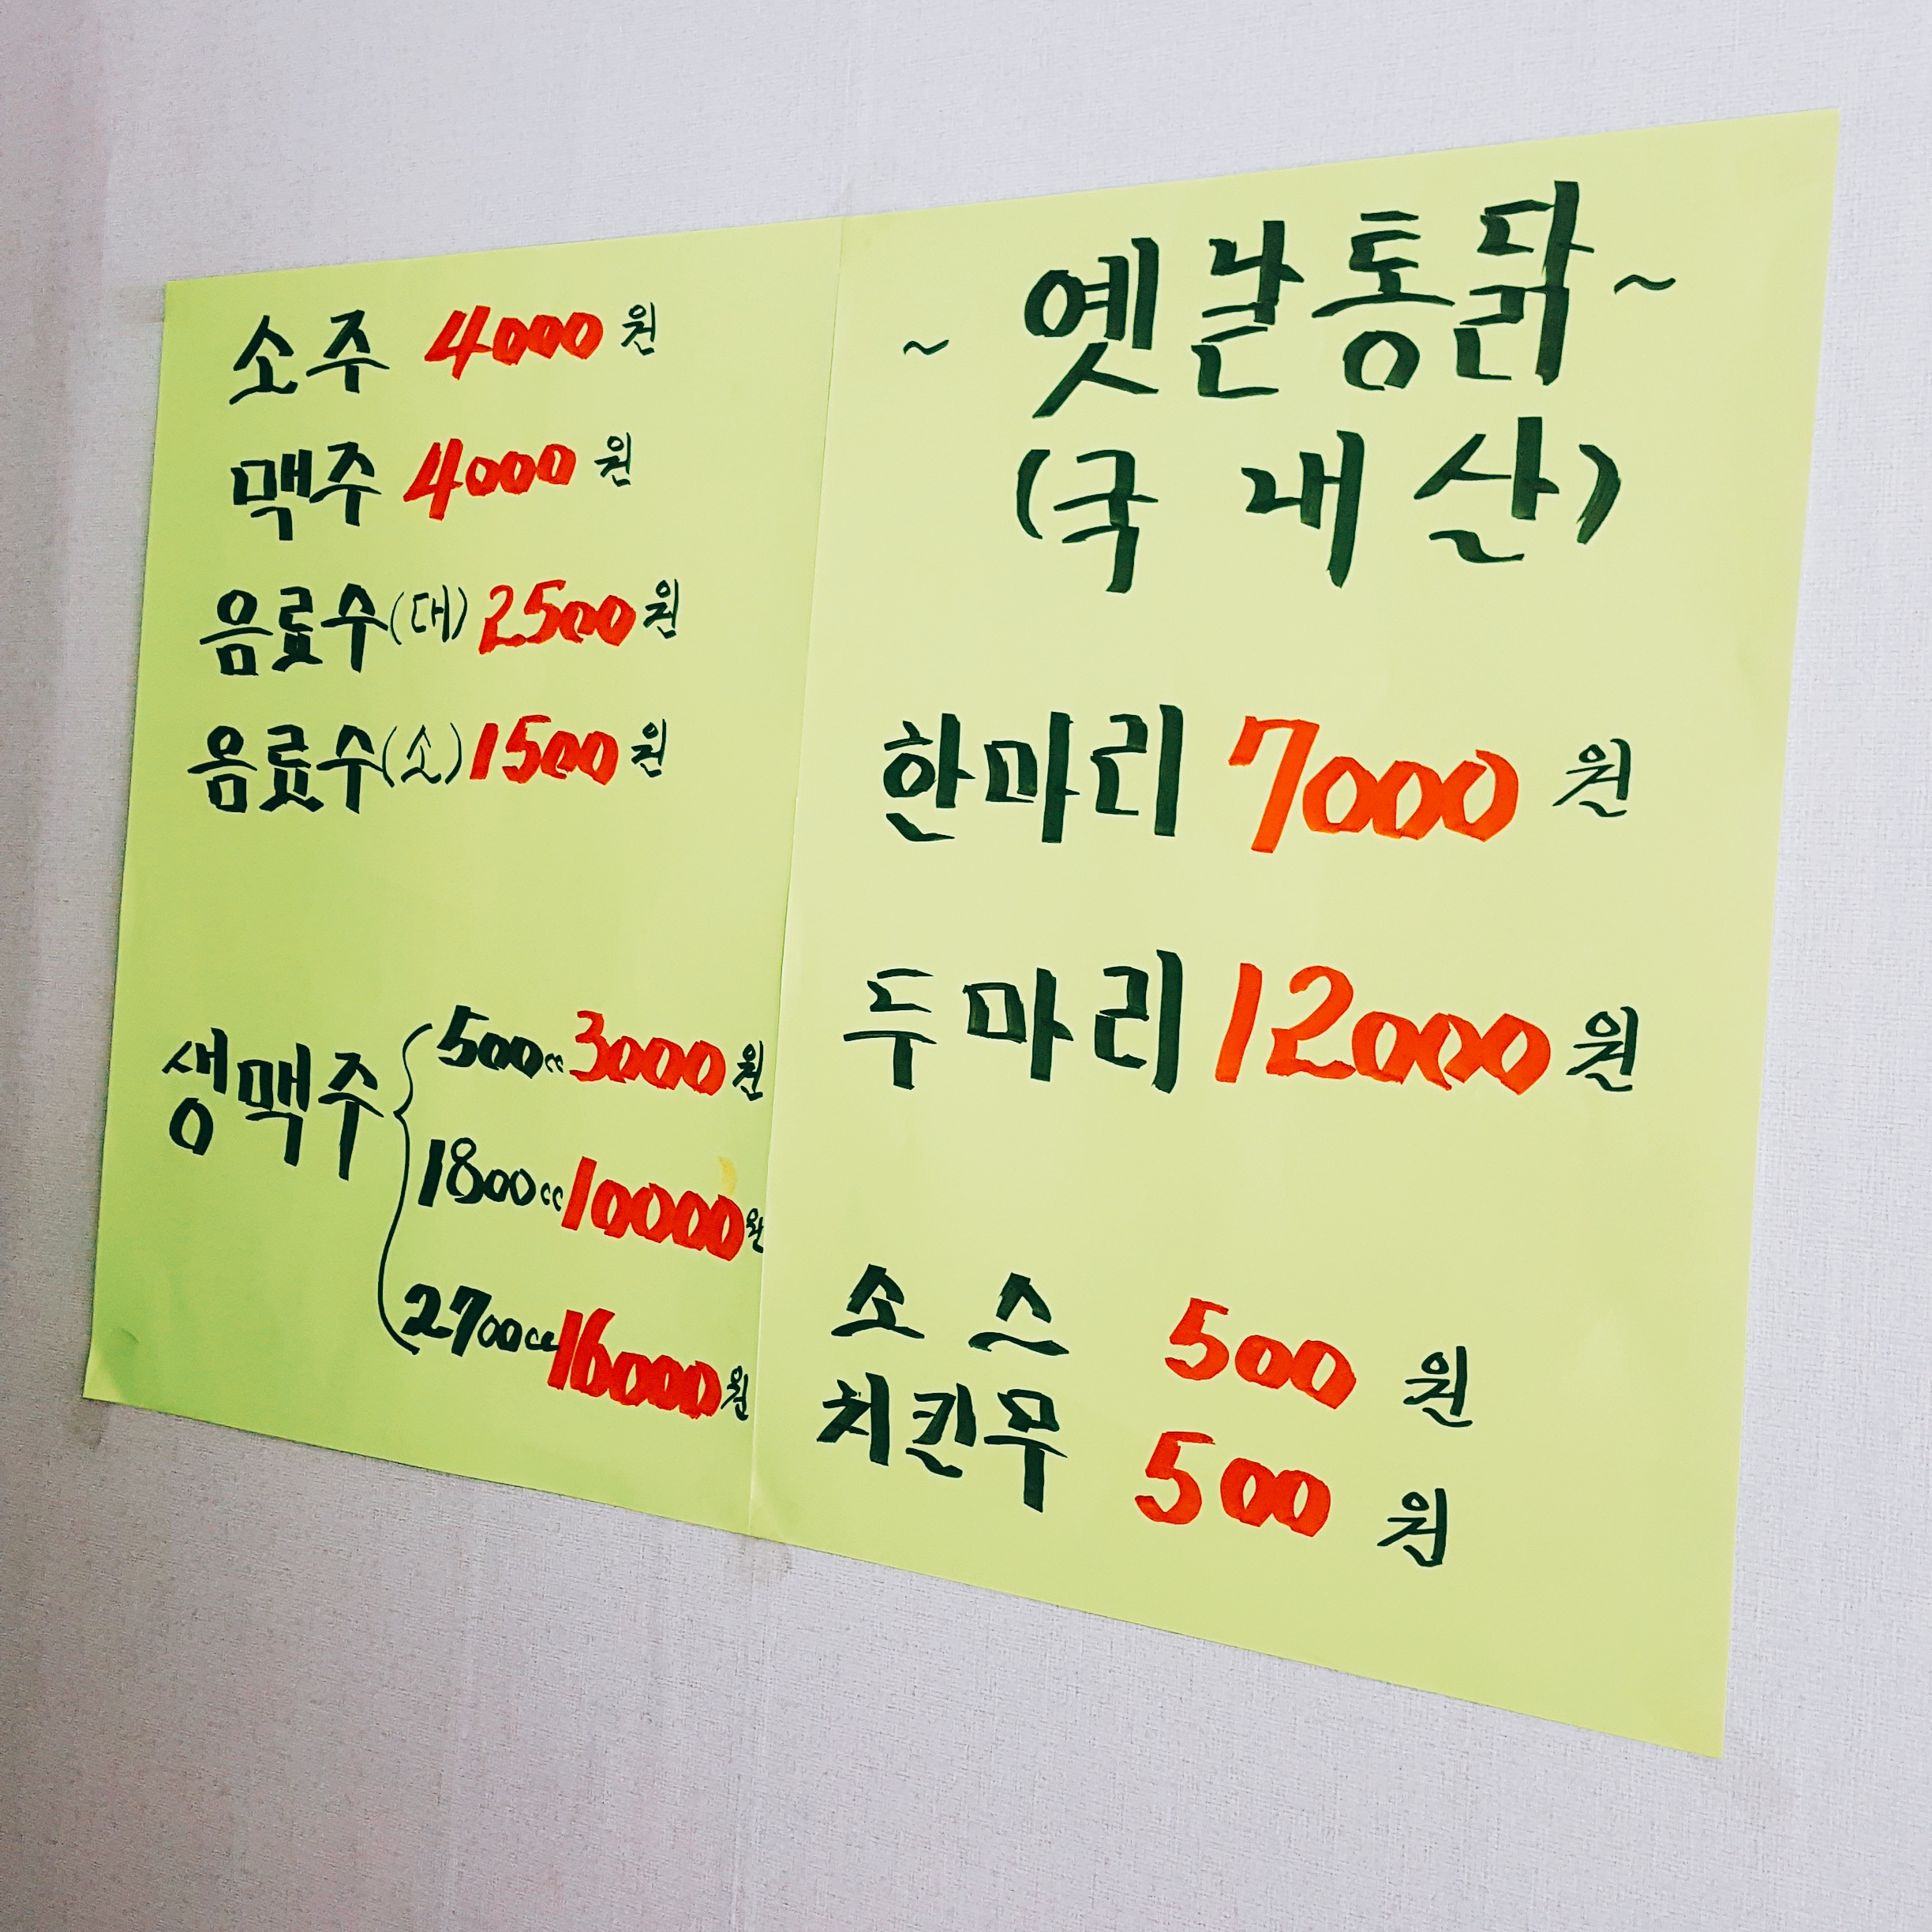 소주 4000원
맥주 4000원
음료수(대) 2500원
음료수(소) 1500원
생맥주
500cc 3000원
1800cc 10000원
2700cc 16000원
~옛날통닭~
(국내산)
한마리 7000원
두마리 12000원
소스 500원
치킨무 500원